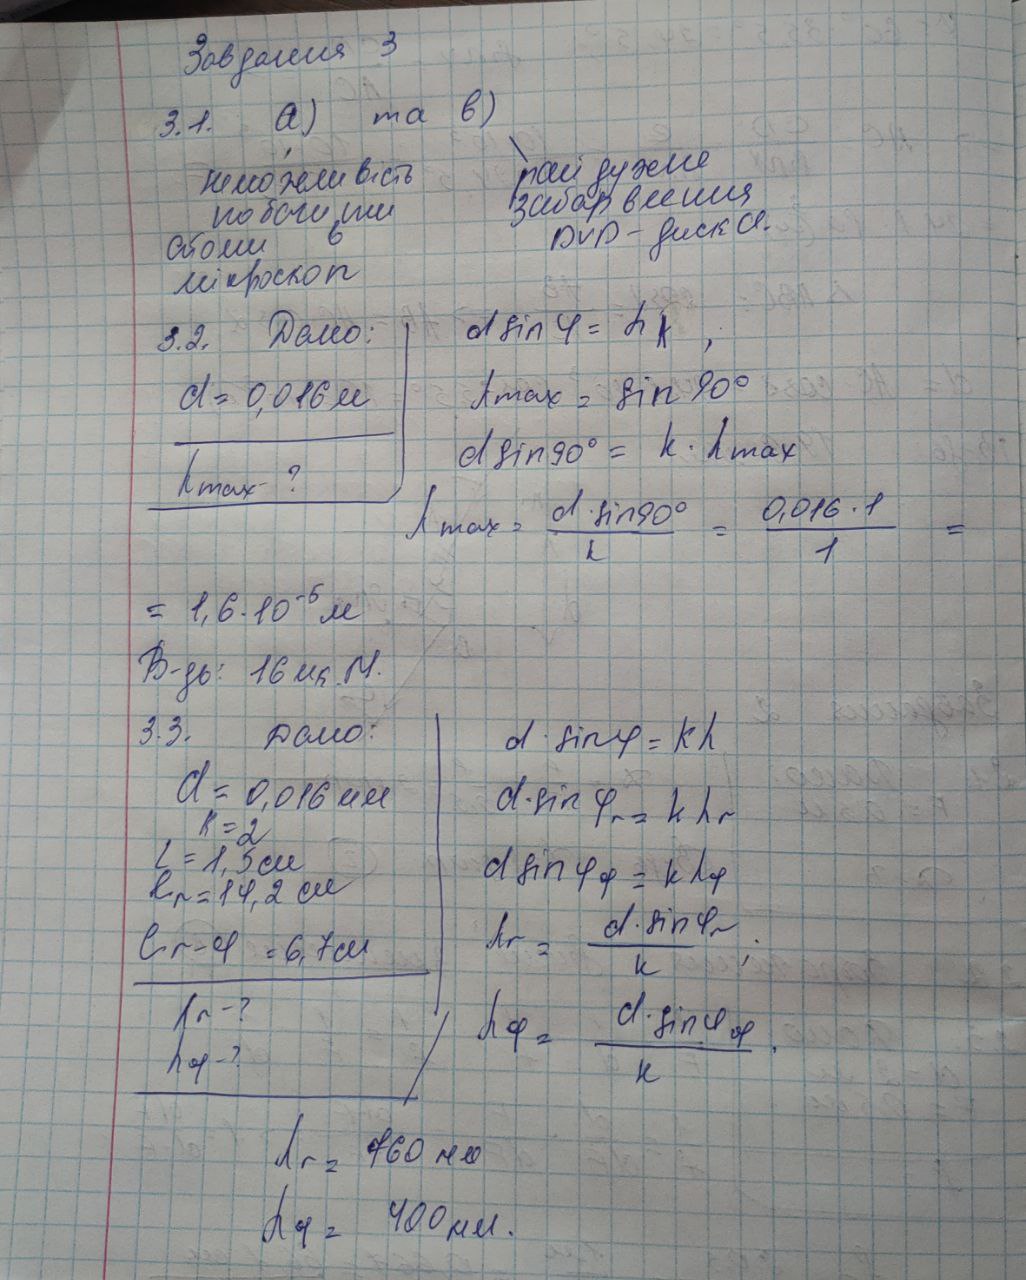 Завдання 3
3.1. а) та в)
неможливість
побачити
атоми в
мікроскоп
райдужне
забарвлення
DVD-диска.
3.2. Дано:
d = 0,016 м
λmax - ?
d sin φ = λk,
λmax = sin 90°
d sin 90° = k · λmax
λmax = d · sin 90° / k = 0,016 · 1 / 1 =
= 1,6 · 10⁻⁵ м
В-дь: 16 мк.М.
3.3. Дано:
d = 0,016 мм
k = 2
l = 1,5 см
lr = 14,2 см
lr-φ = 6,7 см
λr - ?
λφ - ?
d · sin φ = kλ
d · sin φr = kλr
d sin φφ = kλφ
λr = d · sin φr / k ;
λφ = d · sin φφ / k .
λr = 760 нм
λφ = 400 нм.